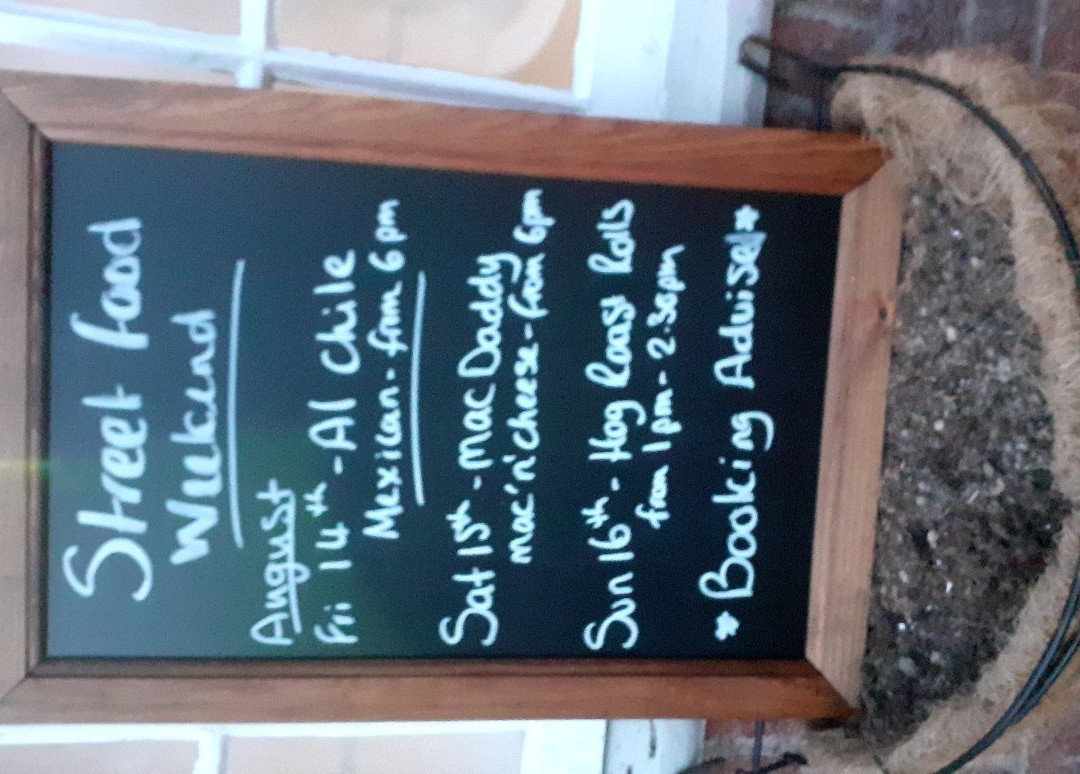 Street food
Weekend
August
Fri 14th - Al Chile
Mexican - from 6pm
Sat 15th - Mac Daddy
mac'n'cheese - from 6pm
Sun 16th - Hog Roast Rolls
from 1pm - 2.30pm
*Booking Advised*